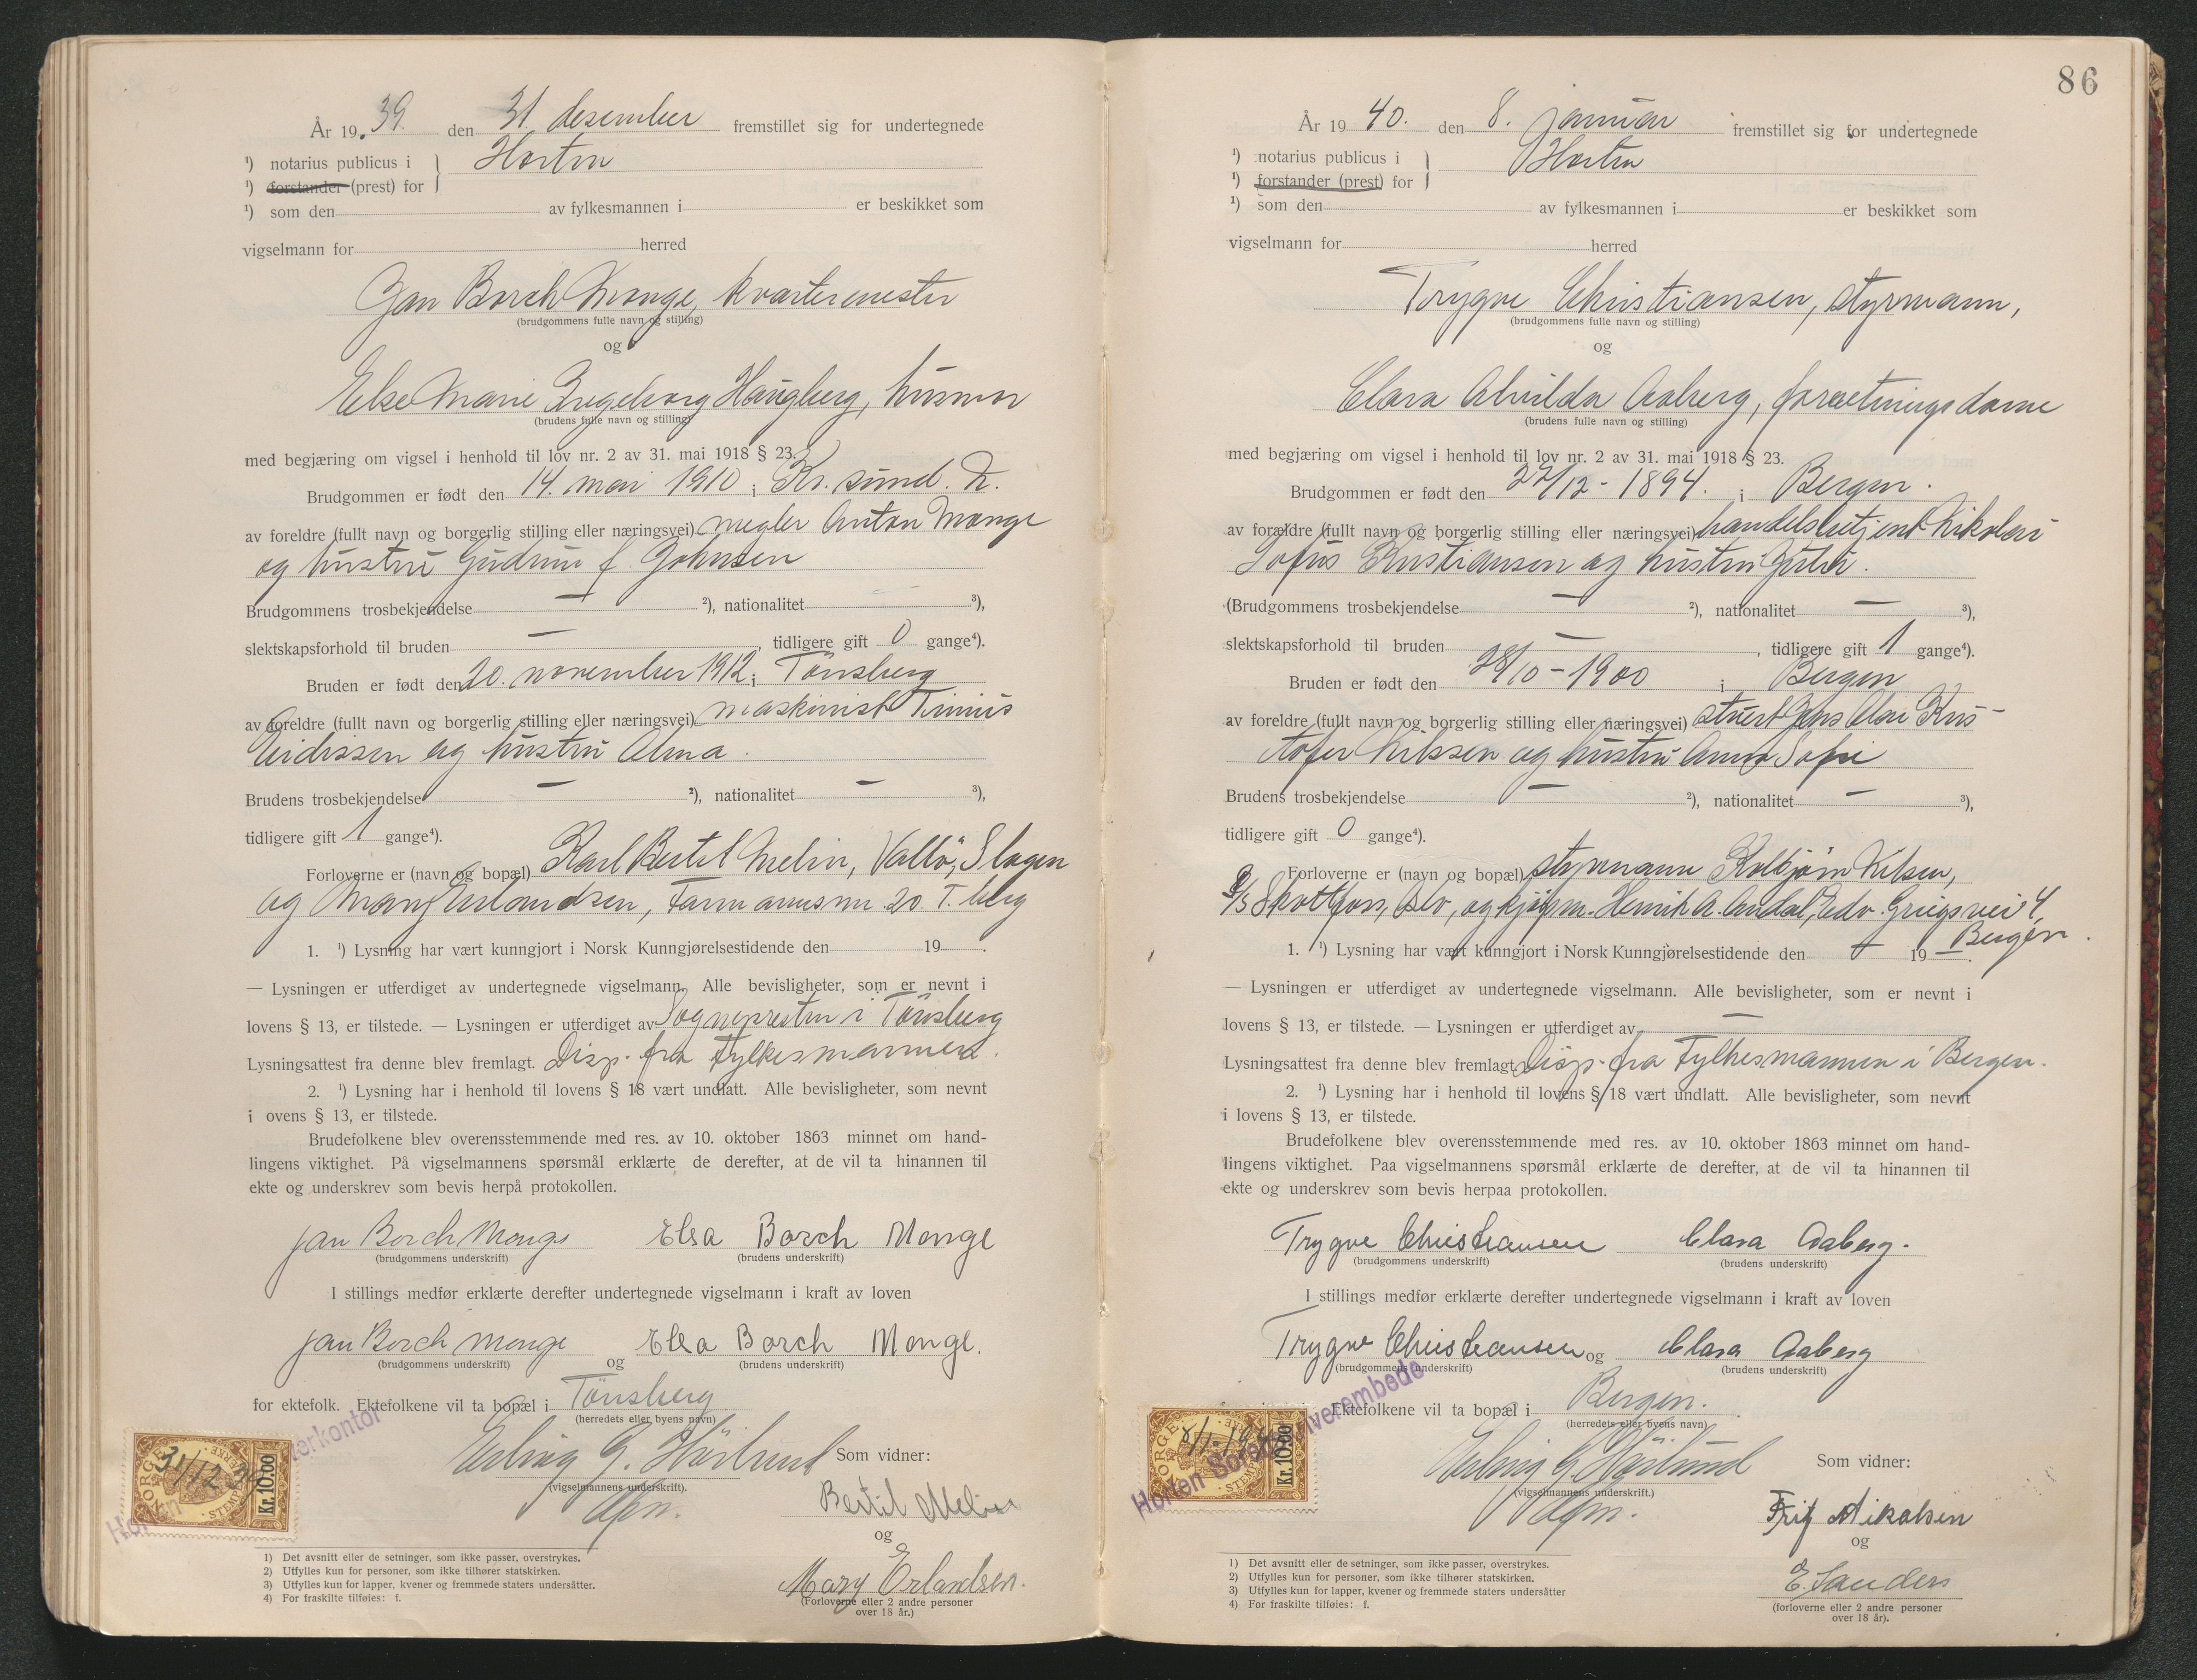 År 19 39. den 31. desember fremstillet sig for undertegnede
¹) notarius publicus i } Horten
¹) forstander (prest) for
¹) som den av fylkesmannen i er beskikket som
vigselmann for herred
Jan Borch Monge, kvartermester
(brudgommens fulle navn og stilling)
og
Else Marie Ingeborg Haugberg, husmor
(brudens fulle navn og stilling)
med begjæring om vigsel i henhold til lov nr. 2 av 31. mai 1918 § 23.
Brudgommen er født den 14. mai 1910 i Kr.sund. N.
av foreldre (fullt navn og borgerlig stilling eller næringsvei) megler Anton Monge
og hustru Gudrun f. Johnsen
Brudgommens trosbekjendelse — ²), nationalitet ³),
slektskapsforhold til bruden — , tidligere gift 0 gange⁴).
Bruden er født den 20. november 1912 i Tönsberg
av foreldre (fullt navn og borgerlig stilling eller næringsvei) maskinist
og hustru Alma.
Brudens trosbekjendelse — ²), nationalitet — ³),
tidligere gift 1 gange⁴).
Forloverne er (navn og bopæl) Karl Bertil Melin, Vallö, Slagen
og Mary Erlandsen, Farmannsvn. 20 T.berg
1. ¹) Lysning har vært kunngjort i Norsk Kunngjørelsestidende den 19 .
— Lysningen er utferdiget av undertegnede vigselmann. Alle bevisligheter, som er nevnt i
lovens § 13, er tilstede. — Lysningen er utferdiget av Sognepresten i Tönsberg
Lysningsattest fra denne blev fremlagt. Disp. fra Fylkesmannen.
2. ¹) Lysning har i henhold til lovens § 18 vært undlatt. Alle bevisligheter, som nevnt
i ovens § 13, er tilstede.
Brudefolkene blev overensstemmende med res. av 10. oktober 1863 minnet om hand-
lingens viktighet. På vigselmannens spørsmål erklærte de derefter, at de vil ta hinannen til
ekte og underskrev som bevis herpå protokollen.
Jan Borch Monge Elsa Borch Monge
(brudgommens underskrift) (brudens underskrift)
I stillings medfør erklærte derefter undertegnede vigselmann i kraft av loven
Jan Borch Monge og Elsa Borch Monge.
(brudgommens underskrift) (brudens underskrift)
for ektefolk. Ektefolkene vil ta bopæl i Tönsberg
(herredets eller byens navn)
NORGE STEMPELMERKE Kr. 10.00
31/12 39
Erling G. Hörlund Som vidner:
(vigselmannens underskrift).
Bertil Melin
og
Mary Erlandsen.
(Forloverne eller 2 andre personer
over 18 år.)
1) Det avsnitt eller de setninger, som ikke passer, overstrykes.
2) Utfylles kun for personer, som ikke tilhører statskirken.
3) Utfylles kun for lapper, kvener og fremmede staters undersåtter.
4) For fraskilte tilføies: f.
86
År 19 40. den 8. januar fremstillet sig for undertegnede
¹) notarius publicus i } Horten
¹) forstander (prest) for
¹) som den av fylkesmannen i er beskikket som
vigselmann for herred
Trygve Christiansen, styrmann,
(brudgommens fulle navn og stilling)
og
Clara Alvilda Aaberg, forretningsdame
(brudens fulle navn og stilling)
med begjæring om vigsel i henhold til lov nr. 2 av 31. mai 1918 § 23.
Brudgommen er født den 22/12 - 1894. i Bergen.
av forældre (fullt navn og borgerlig stilling eller næringsvei) handelsbetjent Nikolai
Sofus Kristiansen og hustru
(Brudgommens trosbekjendelse — ²), nationalitet — ³),
slektskapsforhold til bruden — , tidligere gift 1 gange⁴).
Bruden er født den 28/10 - 1900 i Bergen
av foreldre (fullt navn og borgerlig stilling eller næringsvei) stuert Jens Kris-
tofer Nilssen og hustru Anna Sofie
Brudens trosbekjendelse — ²), nationalitet — ³),
tidligere gift 0 gange⁴).
Forloverne er (navn og bopæl) styrmann Kolbjörn Nilsen,
D/S Skottfoss, Oslo, og kjøpm. Henrik A. Andal, Edv. Griegsvei 4,
Bergen.
1. ¹) Lysning har vært kunngjort i Norsk Kunngjørelsestidende den — 19 — .
— Lysningen er utferdiget av undertegnede vigselmann. Alle bevisligheter, som er nevnt i
lovens § 13, er tilstede. — Lysningen er utferdiget av —
Lysningsattest fra denne blev fremlagt. Disp. fra Fylkesmannen i Bergen.
2. ¹) Lysning har i henhold til lovens § 18 vært undlatt. Alle bevisligheter, som nevnt
i lovens § 13, er tilstede.
Brudefolkene blev overensstemmende med res. av 10. oktober 1863 minnet om hand-
lingens viktighet. Paa vigselmannens spørsmål erklærte de derefter, at de vil ta hinannen til
ekte og underskrev som bevis herpaa protokollen.
Trygve Christiansen Clara Aaberg.
(brudgommens underskrift) (brudens underskrift)
I stillings medfør erklærte derefter undertegnede vigselmann i kraft av loven
Trygve Christiansen og Clara Aaberg
(brudgommens underskrift) (brudens underskrift)
Ektefolkene vil ta bopæl i Bergen.
(herredets eller byens navn)
NORGE STEMPELMERKE Kr. 10.00
Horten Sorenskriverembede
Erling G. Hörlund Som vidner:
(vigselmannens underskrift.)
Nikolsen
og
E. Sanders
(forloverne eller 2 andre personer
over 18 år).
1) Det avsnitt eller de setninger, som ikke passer, overstrykes.
2) Utfylles kun for personer, som ikke tilhører statskirken.
3) Utfylles kun for lapper, kvener og fremmede staters undersåtter
4) For fraskilte tilføies: f.